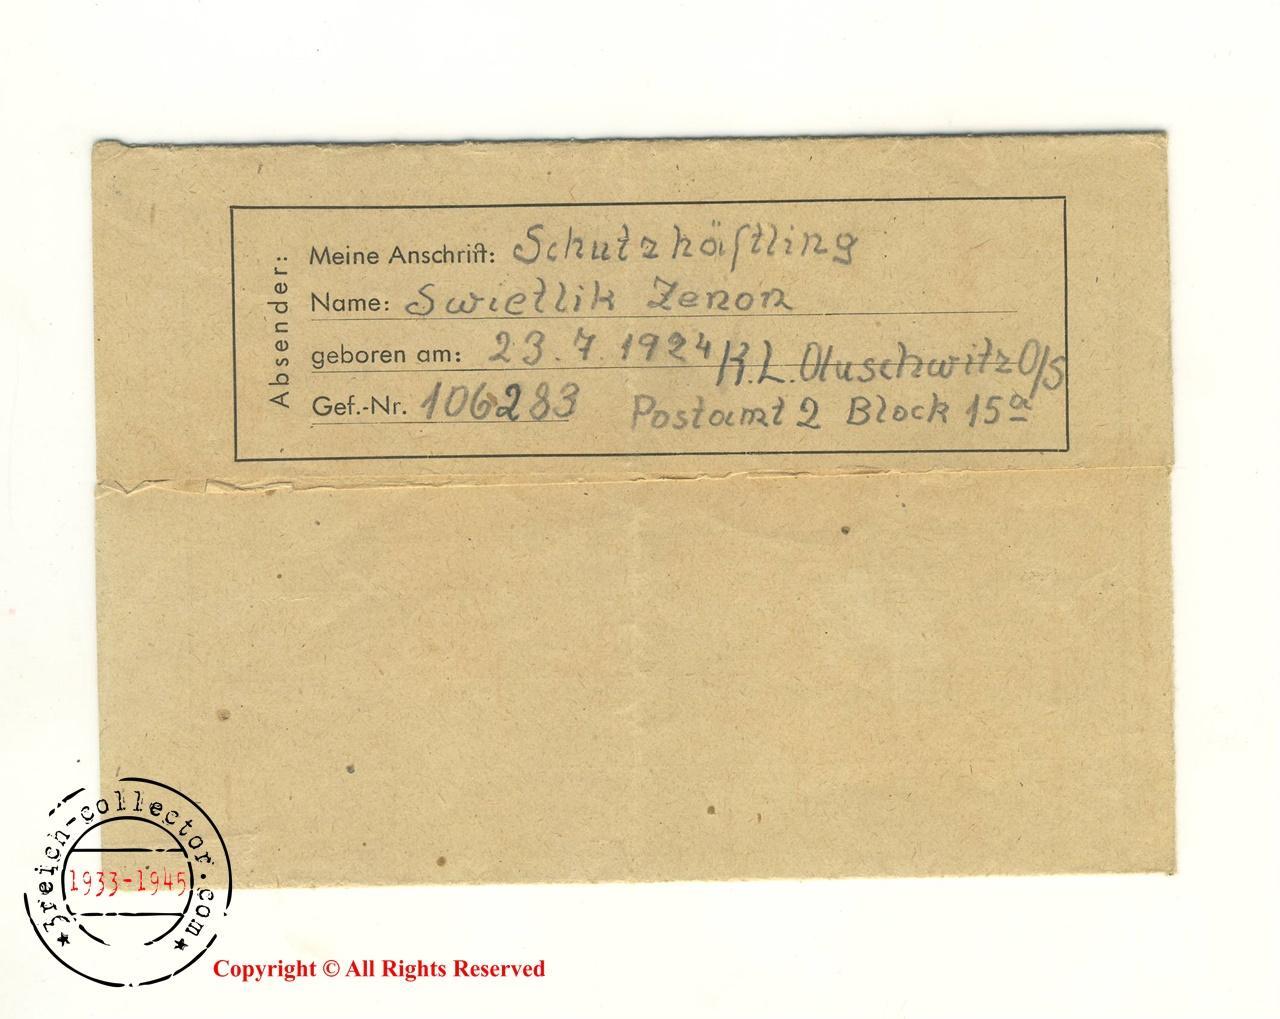 Absender:
Meine Anschrift: Schutzhäftling
Name: Swietlik Zenon
geboren am: 23.7.1924 K.L. Auschwitz O/S
Gef.-Nr. 106283 Postamt 2 Block 15a
3reich-collector.com
1933-1945
Copyright © All Rights Reserved